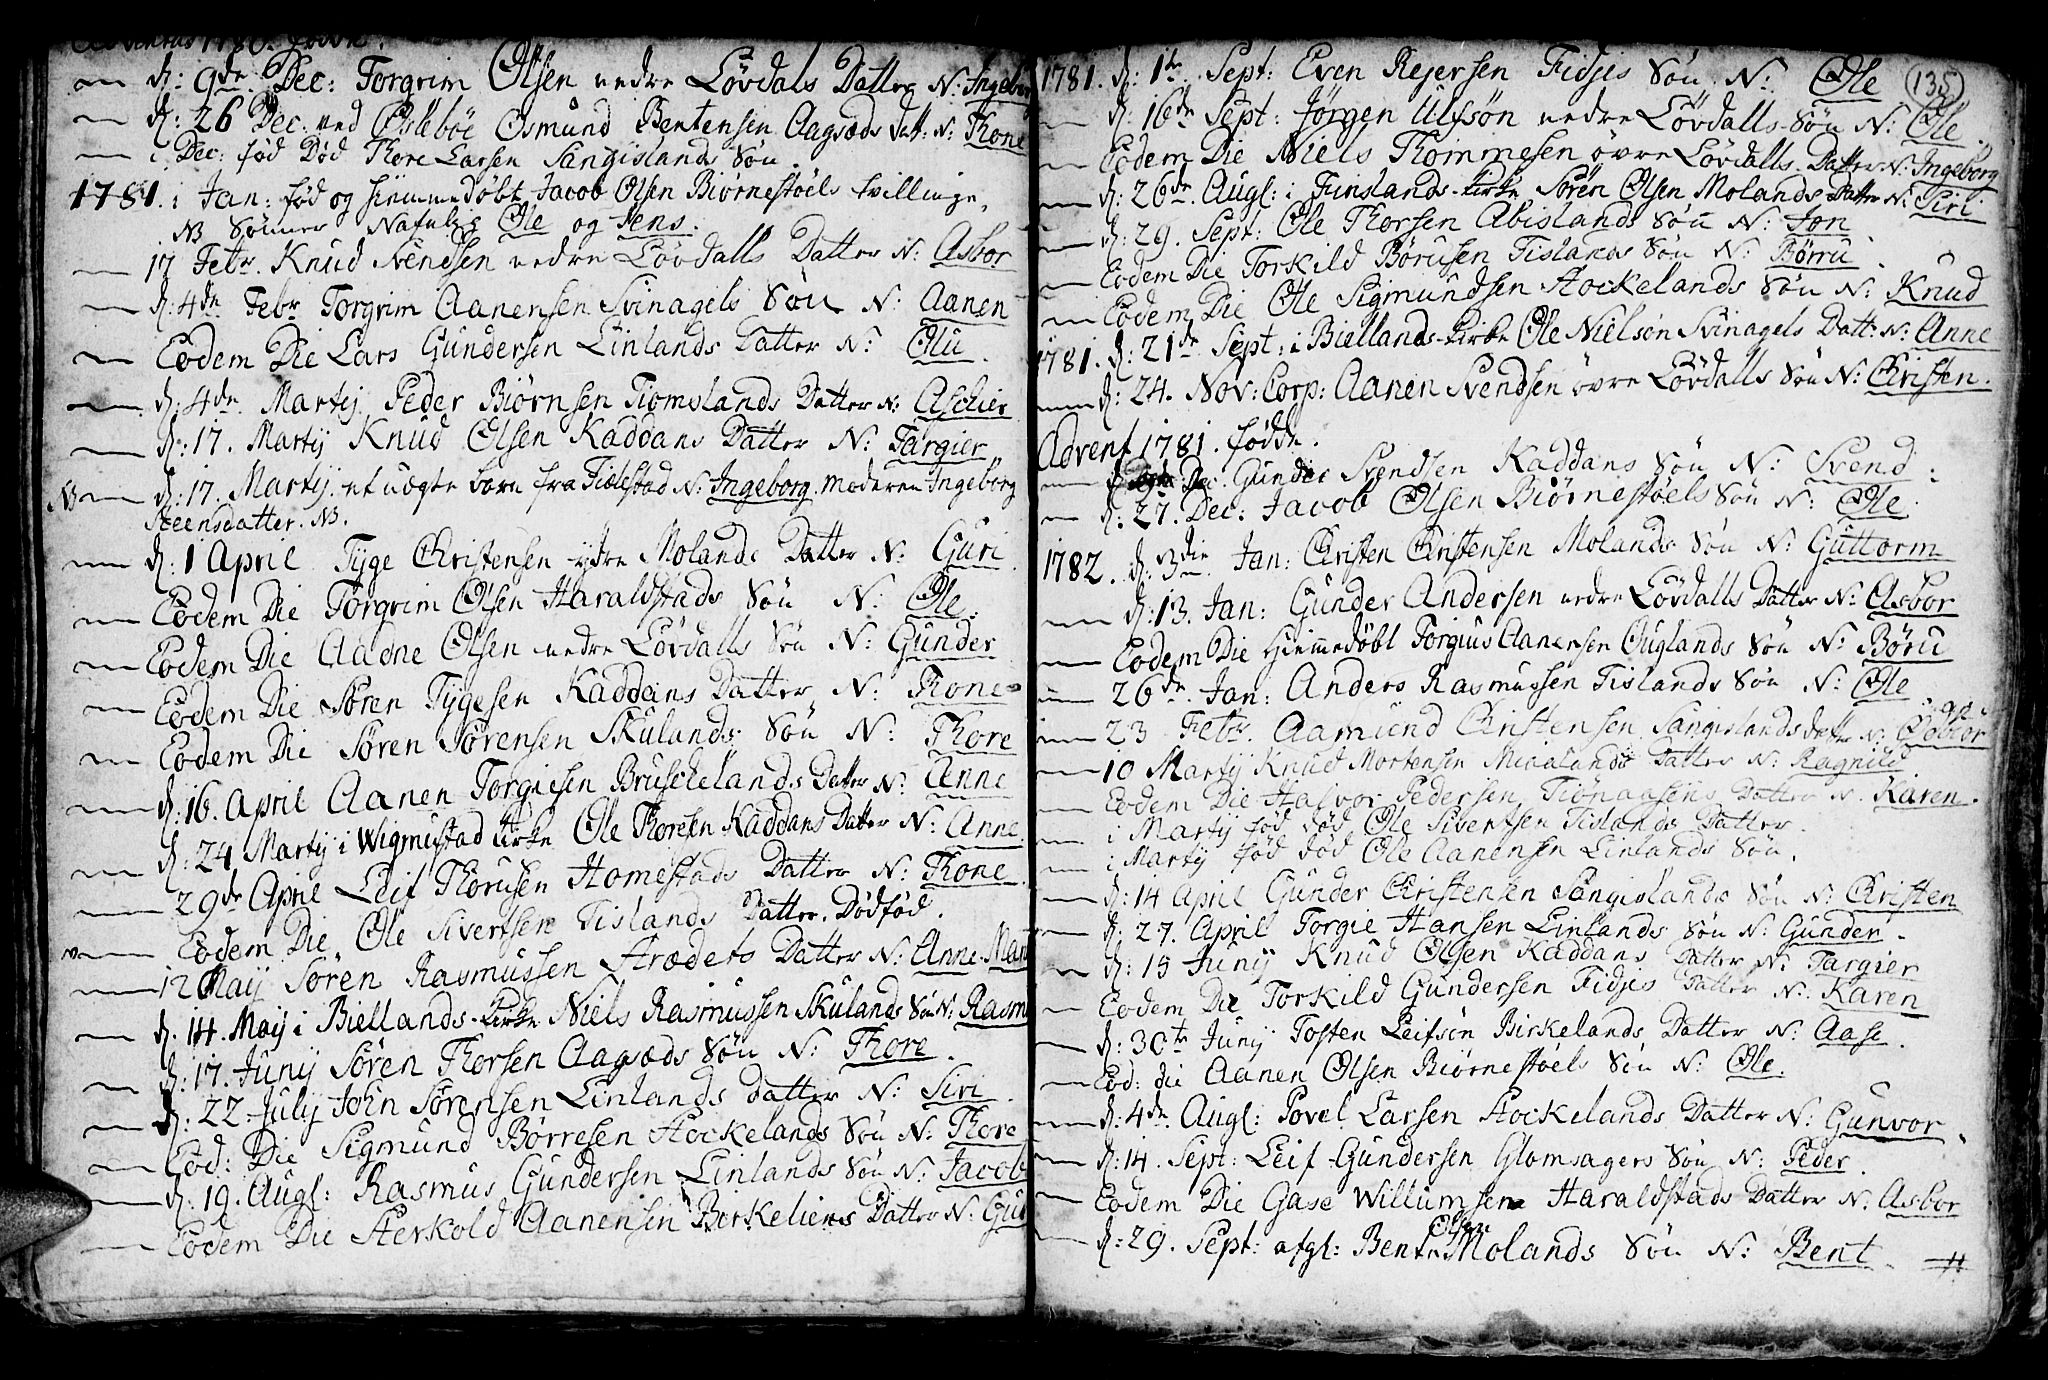 Adventus 1780. fødde.
d: 9de Dec: Torgrim Olsen nedre Lövdals Datter N: Ingebor
d: 26 Dec. ved Øslebøe Osmund Bentensen Aagsæds datt: N: Thone
i Dec: fød Død Thore Larsen Sangislands Søn.
1781. i Jan: fød og hiemmedøbt Jacob Olsen Biørnestøels tvillinge,
NB Sønner Nafnlig Ole og Jens.
17 Febr. Knud Svendsen nedre Lövdalls Datter N: Asbor
d: 4de Febr Torgrim Aanensen Svinagels Søn N: Aanen
Eodem Die Lars Gundersen Linlands Datter N: Olu.
d: 4de Martij Peder Biørnsen Tiomslands Datter N: Aschier
d: 17. Martij Knud Olsen Kaddans Datter N: Targier
NB d: 17. Martij et uægte barn fra Fiælestad N: Ingeborg. moderen Ingeborg
Steensdatter. NB.
d: 1 April Tÿge Christensen ÿdre Molands Datter N: Guri
Eodem Die Torgrim Olsen Haraldstads Søn N: Ole.
Eodem Die Aadne Olsen nedre Lövdalls Søn N: Gunder
Eodem Die Sören Tÿgesen Kaddans Datter N: Thone
Eodem Die Søren Sørensen Skulands Søn N: Thore
d: 16. April Aanen Torgiesen Bruschelands Datter N: Anne
d: 24 Martij i Wigmustad Kirke Ole Thoresen Kaddans Datter N: Anne
29de April Leif Thorusen Homestads Datter N: Thone
Eodem Die Ole Sivertsen Tislands Datter. Dødfød.
12 Maij Søren Rasmussen Strædets Datter N: Anne Mari
d. 14. Maij i Biellands-Kirke Niels Rasmussen Skulands Søn N: Rasm
d: 17. Junij Søren Thorsen Aagsæds Søn N: Thore.
d: 22 Julij John Sørensen Linlands Datter N: Siri
Eod: Die Sigmund Børresen Stockelands Søn N: Thore
d: 19. Augl: Rasmus Gundersen Linlands Søn N: Jacob
Eodem Die Sterkold Aanensen Birkeliens Datter N: Gun
1781. d: 1te Sept: Even Rejersen Fidjes Søn N: Ole 135
d: 16de Sept: Jørgen Ulfsøn nedre Lövdalls-Søn N: Ole.
Eodem Die Niels Thommesen øvre Lövdalls-Datter N: Ingeborg
d: 26de Augl: i Finslands-Kirke Søren Olsen Molands Datter N: Siri
d: 29. Sept: Ole Thorsen Abislands Søn N: Jon
Eodem Die Torkild Børusen Tislands Søn N: Børru
Eodem Die Ole Sigmundsen Stockelands Søn N: Knud
1781. d: 21de Sept: i Biellands-Kirke Ole Nielsøn Svinagels Datt: N: Anne
d: 24. Nov: Corp: Aanen Svendsen øvre Lövdalls Søn N: Christen.
Advent 1781. fødde.
Dec. Gunder Svendsen Kaddans Søn N: Svend.
d: 27. Dec: Jacob Olsen Biørnestøels Søn N: Ole.
1782. d: 3die Jan: Christen Christensen Molands Søn N: Guttorm
d: 13. Jan: Gunder Andersen nedre Lövdalls Datter N: Asbor
Eodem Die Hiemmedøbt Torgius Aanensen Ouglands Søn N: Børu
26de Jan: Anders Rasmussen Tislands Søn N: Ole
23 Febr. Aamund Christensen Sangislands datter N: Osbor
10 Martij Knud Mortensen Mioalands Datter N: Ragnild
Eodem Die Halvor Pedersen Tiønaasens Datter N: Karen.
i Martij fød død Ole Sivertsen Tislands Datter.
i Martij fød død Ole Aanensen Linlands Søn.
d: 14 April Gunder Christensen Sangislands Søn N: Christen
d: 27. April Torgie Hansen Linlands Søn N: Gunder.
d: 15 Junij Knud Olsen Kaddans Datter N: Targier
Eodem Die Torkild Gundersen Fidjes Datter N: Karen
d: 30te Junij Tosten Leifsøn Birkelands Datter N: Aase.
Eod: die Aanen Olsen Biørnestøels Søn N: Ole.
d: 4de Augl: Povel Larsen Stockelands Datter N: Gunvor.
d: 14. Sept: Leif Gundersen Glomsagers Søn N: Peder.
Eodem Die Gase Willumsen Haraldstads Datter N. Asbor
d: 29. Sept: afgl: Bent Olsen Molands Søn N: Bent.